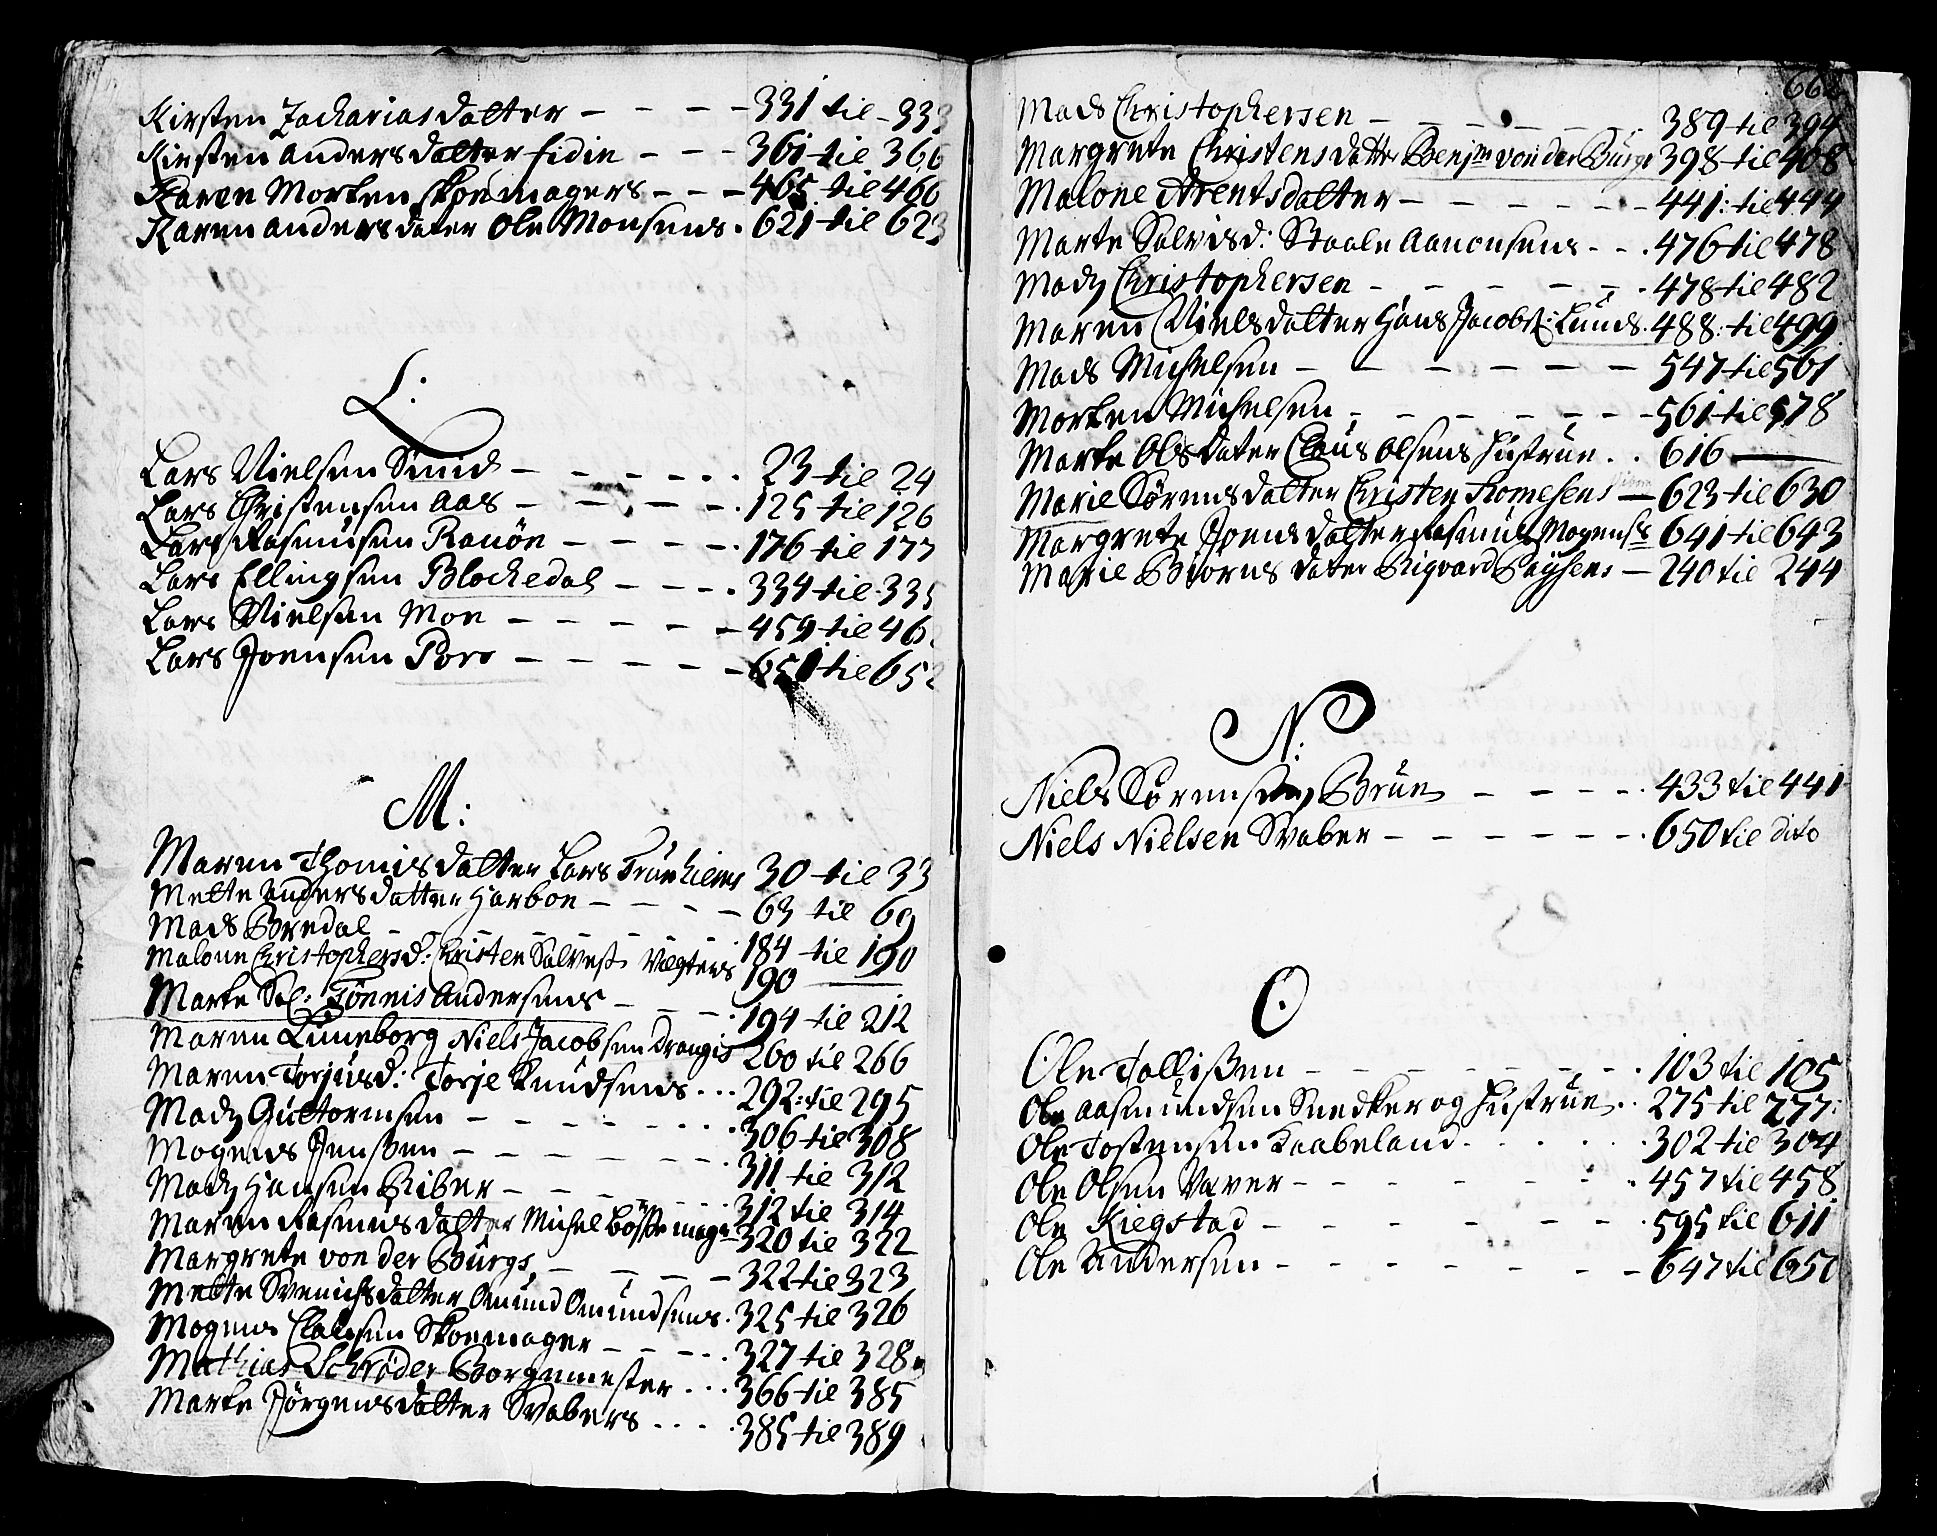 Kirsten Zacharias datter - - - - 331 til 333
Kirsten Anders datter Eidie - - - 361 til 366
Karen Morten Skomagers - - - 465 til 466
Karen Anders dater Ole Monsens . 621 til 623
L:
Lars Nielsen Smid - - - - - . 23 til 24
Lars Christensen Aas - - - - - . 125 til 126
Lars Rasmusen Ranön - - - - . 176 til 177
Lars Ellingsen Blochedal - - - . 334 til 335
Lars Nielsen Moe - - - - - 459 til 46
Lars Joensen Pors - - - - - 651 til 652
M:
Maren Thomis datter Lars Trunhiems 30 til 33
Mette Anders datter Harboe - - - - 63 til 69
Mads Bredal - - - - - - . 184 til 190
Malone Christophersd: Christen Salves Vægters 190
Marte Sal: Tönnis Andersens - - - . 194 til 212
Maren Luneborg Niels Jacobsen Drangis 260 til 266
Maren Torjusd: Torje Knudsens ... 292: til 295
Mads Guttormsen - - - - - . . 306 til 308
Mogens Jenssen - - - - - . . 311 til 312
Mads Hansen Riber - - - - - . 312 til 314
Maren Rasmus datter Michel Bösse mag: 320 til 322
Margrete von der Burgs - - - - 322 til 323
Mette Svenichs datter Omund Omundsens . 325 til 326
Mogens Clausen Skoemager - - - . . 327 til 328
Mathias Schrøder Borgemester ... 366 til 385
Marte Jörgensdatter Svabers - . . . 385 til 389
66
Mads Christophersen - - - - - . 389 til 394
Margrete Christens datter Benjm von der Burgs 398 til 408
Malone Arentsdatter - - - - - - 441: til 444
Marte Salvisd: Staale Aanonsens - - . 476 til 478
Mads Christophersen - - - - - . 478 til 482
Maren Nielsdatter Hans Jacobs: Lunds . 488: til 499
Mads Michelsen - - - - - - 547 til 561
Morten Michelsen - - - - - - 561 til 578
Marte Ols dater Claus Olsens Hustrue . . 616
Marie Sörensdatter Christen Tomesens — 623 til 630
Margrete Joens datter Rasmus Mogenss 641 til 643
Marie Biorns dater Rigvard Boysens — 240 til 244
N:
Niels Sörensen Brun - - - - . 433 til 441
Niels Nielsen Svaber - - - - - . 650 til dito
O
Ole Tollissen - - - - - - . 103 til 105
Ole Aasmundsen Snedker og Hustrue . . 275 til 277:
Ole Tostensen Kaabeland . . . . . 302 til 304
Ole Olsen Væver - - - - - . 457 til 458
Ole Kiegstad - - - - - - . 595 til 611
Ole Andersen - - - - - - 647 til 650